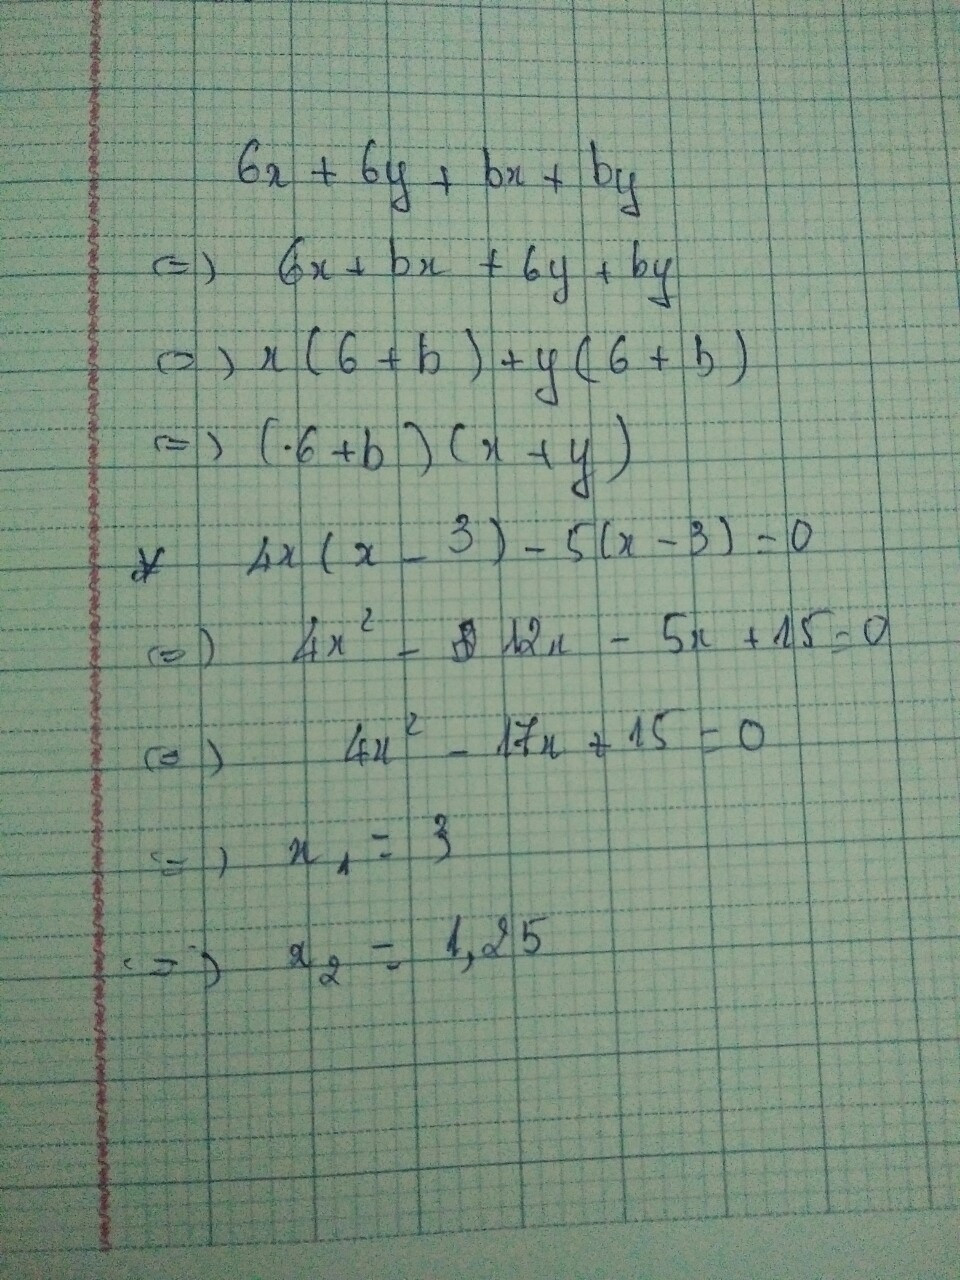 6x + 6y + bx + by
<=> 6x + bx + 6y + by
<=> x(6 + b) + y(6 + b)
<=> (6 + b)(x + y)
* 4x(x - 3) - 5(x - 3) = 0
<=> 4x² - 12x - 5x + 15 = 0
<=> 4x² - 17x + 15 = 0
<=> x₁ = 3
<=> x₂ = 1,25